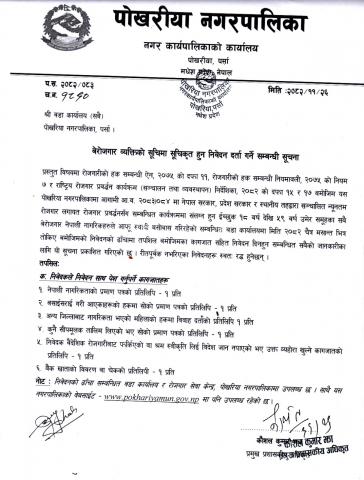 पोखरीया नगरपालिका
नगर कार्यपालिकाको कार्यालय
पोखरीया, पर्सा
मधेश प्रदेश, नेपाल
प.सं. २०८२/०८३
च.नं.
मिति :२०८२/११/२६
श्री वडा कार्यालय (सबै)
पोखरीया नगरपालिका, पर्सा ।
बेरोजगार व्यक्तिको सूचिमा सूचिकृत हुन निवेदन दर्ता गर्ने सम्बन्धी सूचना
प्रस्तुत विषयमा रोजगारीको हक सम्बन्धी ऐन, २०७५ को दफा ११, रोजगारीको हक सम्बन्धी नियमावली, २०७५ को नियम
७ र राष्ट्रिय रोजगार प्रबर्द्धन कार्यक्रम (सञ्चालन तथा व्यवस्थापन) निर्देशिका, २०८२ को दफा १५ र १७ बमोजिम यस
पोखरीया नगरपालिकामा आगामी आ.व. २०८३/०८४ मा नेपाल सरकार, प्रदेश सरकार र स्थानीय तहद्वारा सञ्चालित न्यूनतम
रोजगार लगायत रोजगार प्रबर्द्धनसँग सम्बन्धित कार्यक्रममा संलग्न हुन ईच्छुक १८ वर्ष देखि ५९ वर्ष उमेर समूहका सबै
बेरोजगार नेपाली नागरिकहरुले आफू स्थायी बसोबास गरिरहेको सम्बन्धित वडा कार्यालयमा मिति २०८२ चैत्र मसान्त भित्र
तोकिए बमोजिमको निवेदनको ढाँचामा तपसिल बमोजिमका कागजात सहित निवेदन दिनहुन सम्बन्धित सबैको जानकारीका
लागि यो सूचना प्रकाशित गरिएको छ । रीतपूर्वक नभरिएका निवेदनहरू स्वतः रद्द हुनेछन् ।
तपसिल:
क. निवेदकले निवेदन साथ पेश गर्नुपर्ने कागजातहरू
१ नेपाली नागरिकताको प्रमाण पत्रको प्रतिलिपि - १ प्रति
२ बसाईसराई गरी आएकाहरूको हकमा सोको प्रमाण पत्रको प्रतिलिपि - १ प्रति
३ अन्य जिल्लाबाट नागरिकता भएको महिलाको हकमा विवाह दर्ताको प्रतिलिपि १ प्रति
४ कुनै सीपमूलक तालिम लिएको भए सोको प्रमाण पत्रको प्रतिलिपि - १ प्रति
५ निवेदक बैदेशिक रोजगारीबाट फर्किएको वा श्रम स्वीकृति लिई विदेश जान नपाएको भए उक्त व्यहोरा खुल्ने कागजातको
प्रतिलिपि - १ प्रति
६ बैंक खाताको विवरण वा चेकको प्रतिलिपी - १ प्रति
नोट : निवेदनको ढाँचा सम्बन्धित वडा कार्यालय र रोजगार सेवा केन्द्र, पोखरिया नगरपालिकामा उपलब्ध छ । साथै यस
नगरपालिकाको वेबसाईट - www.pokhariyamun.gov.np मा पनि उपलब्ध रहेको छ।
कौशल कुमार झा
प्रमुख प्रशासकीय अधिकृत